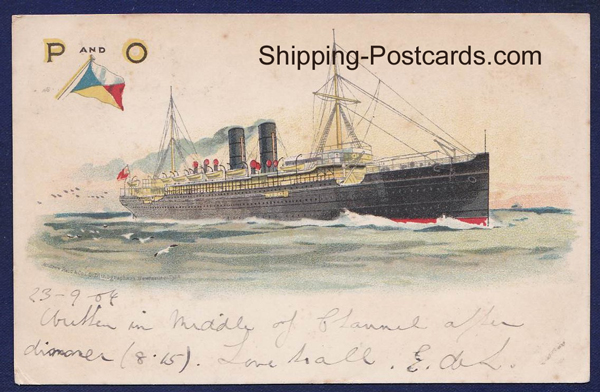 P AND O
Shipping-Postcards.com
23-9-04
Written in Middle of Channel after
dinner (8.15). Love to all. E. de L.